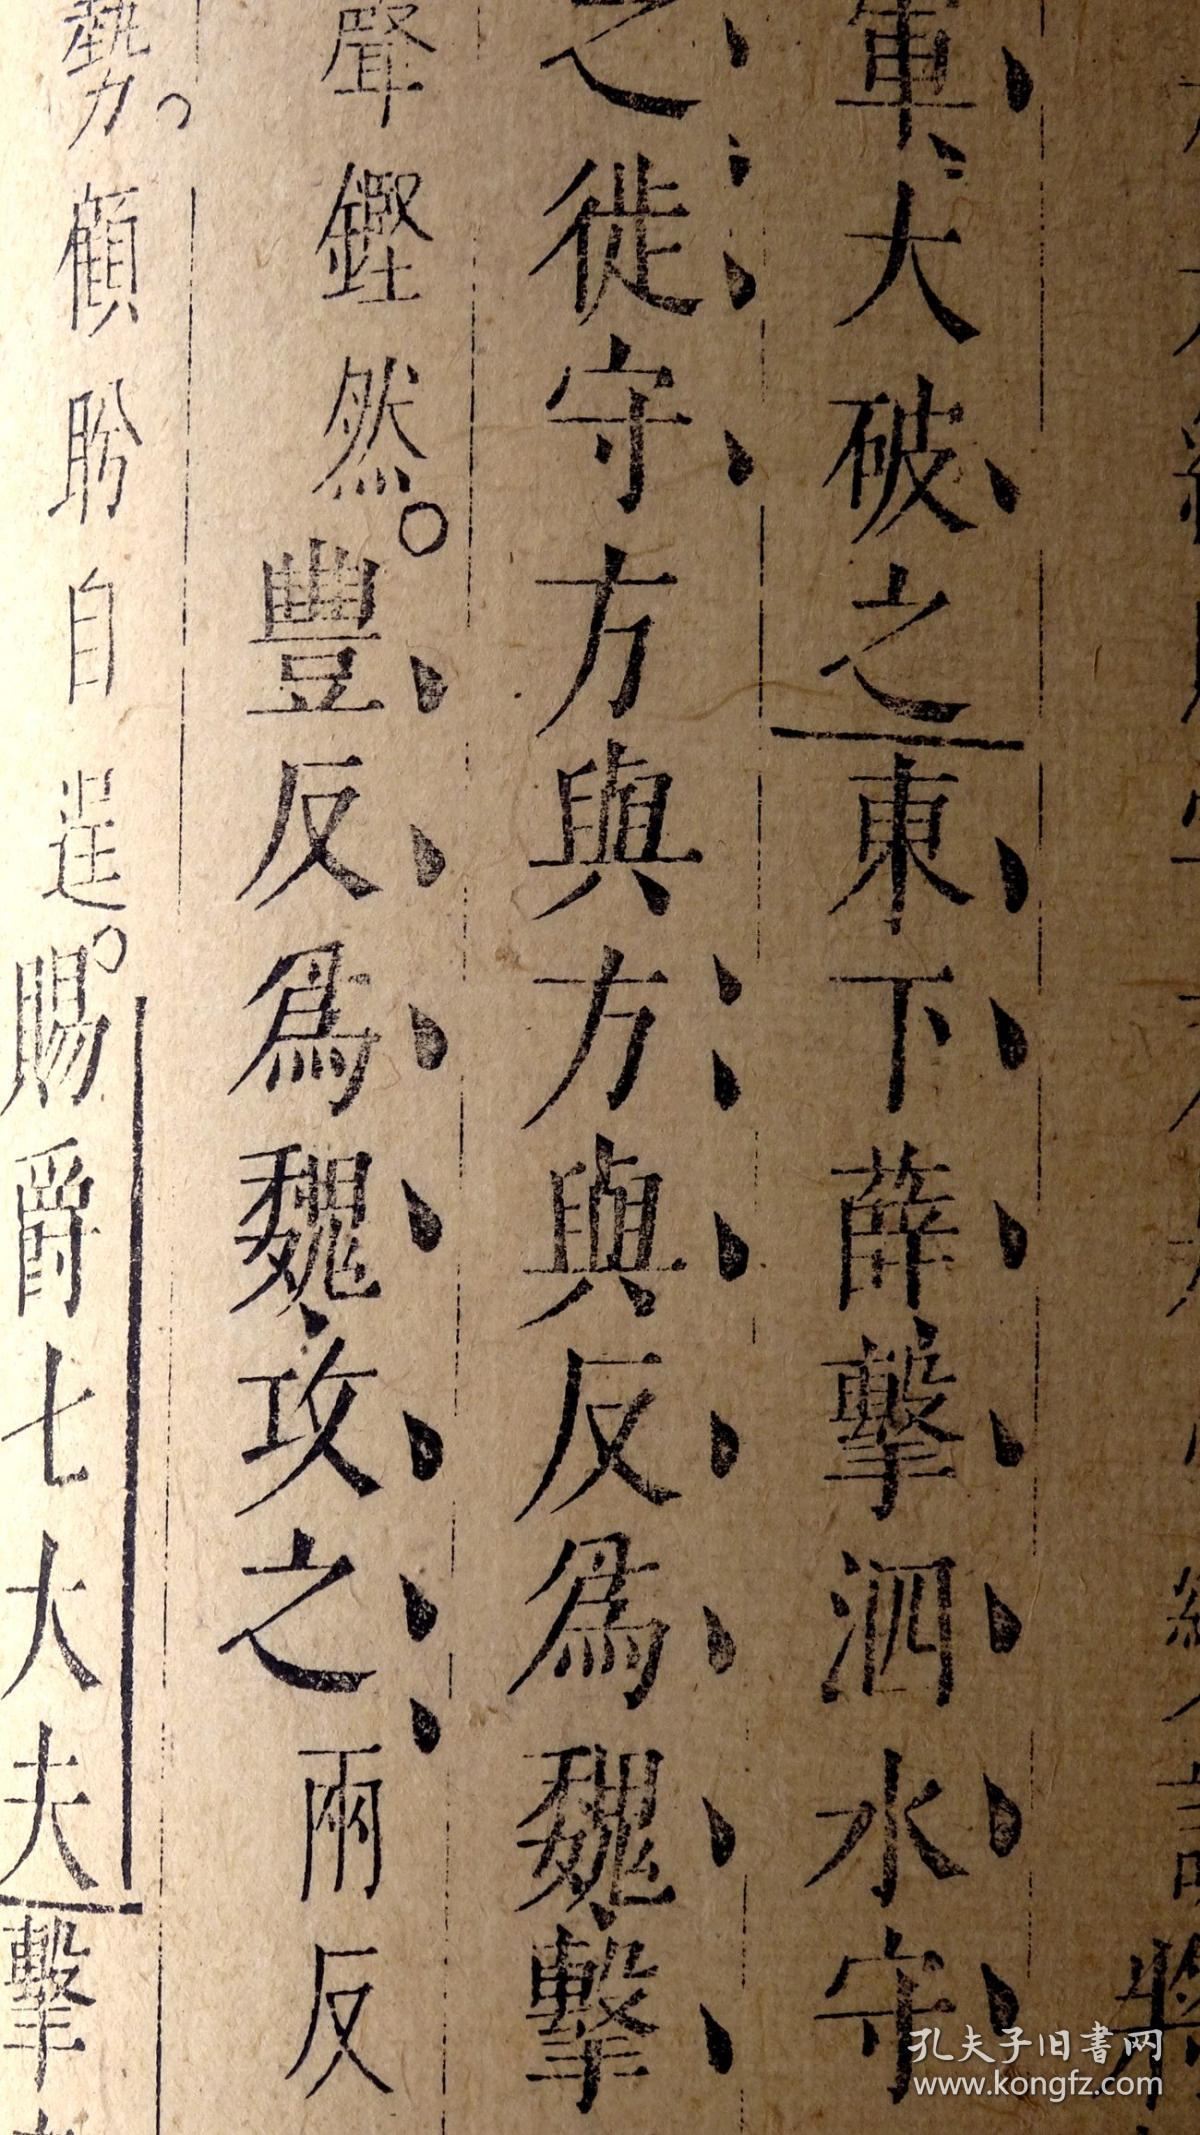 軍大破之東下薛擊泗水守
之徙守方與方與反爲魏擊
聲鏗然。豐反爲魏攻之兩反
勢顧盻自逞。賜爵七大夫擊
孔夫子旧書网
www.kongfz.com